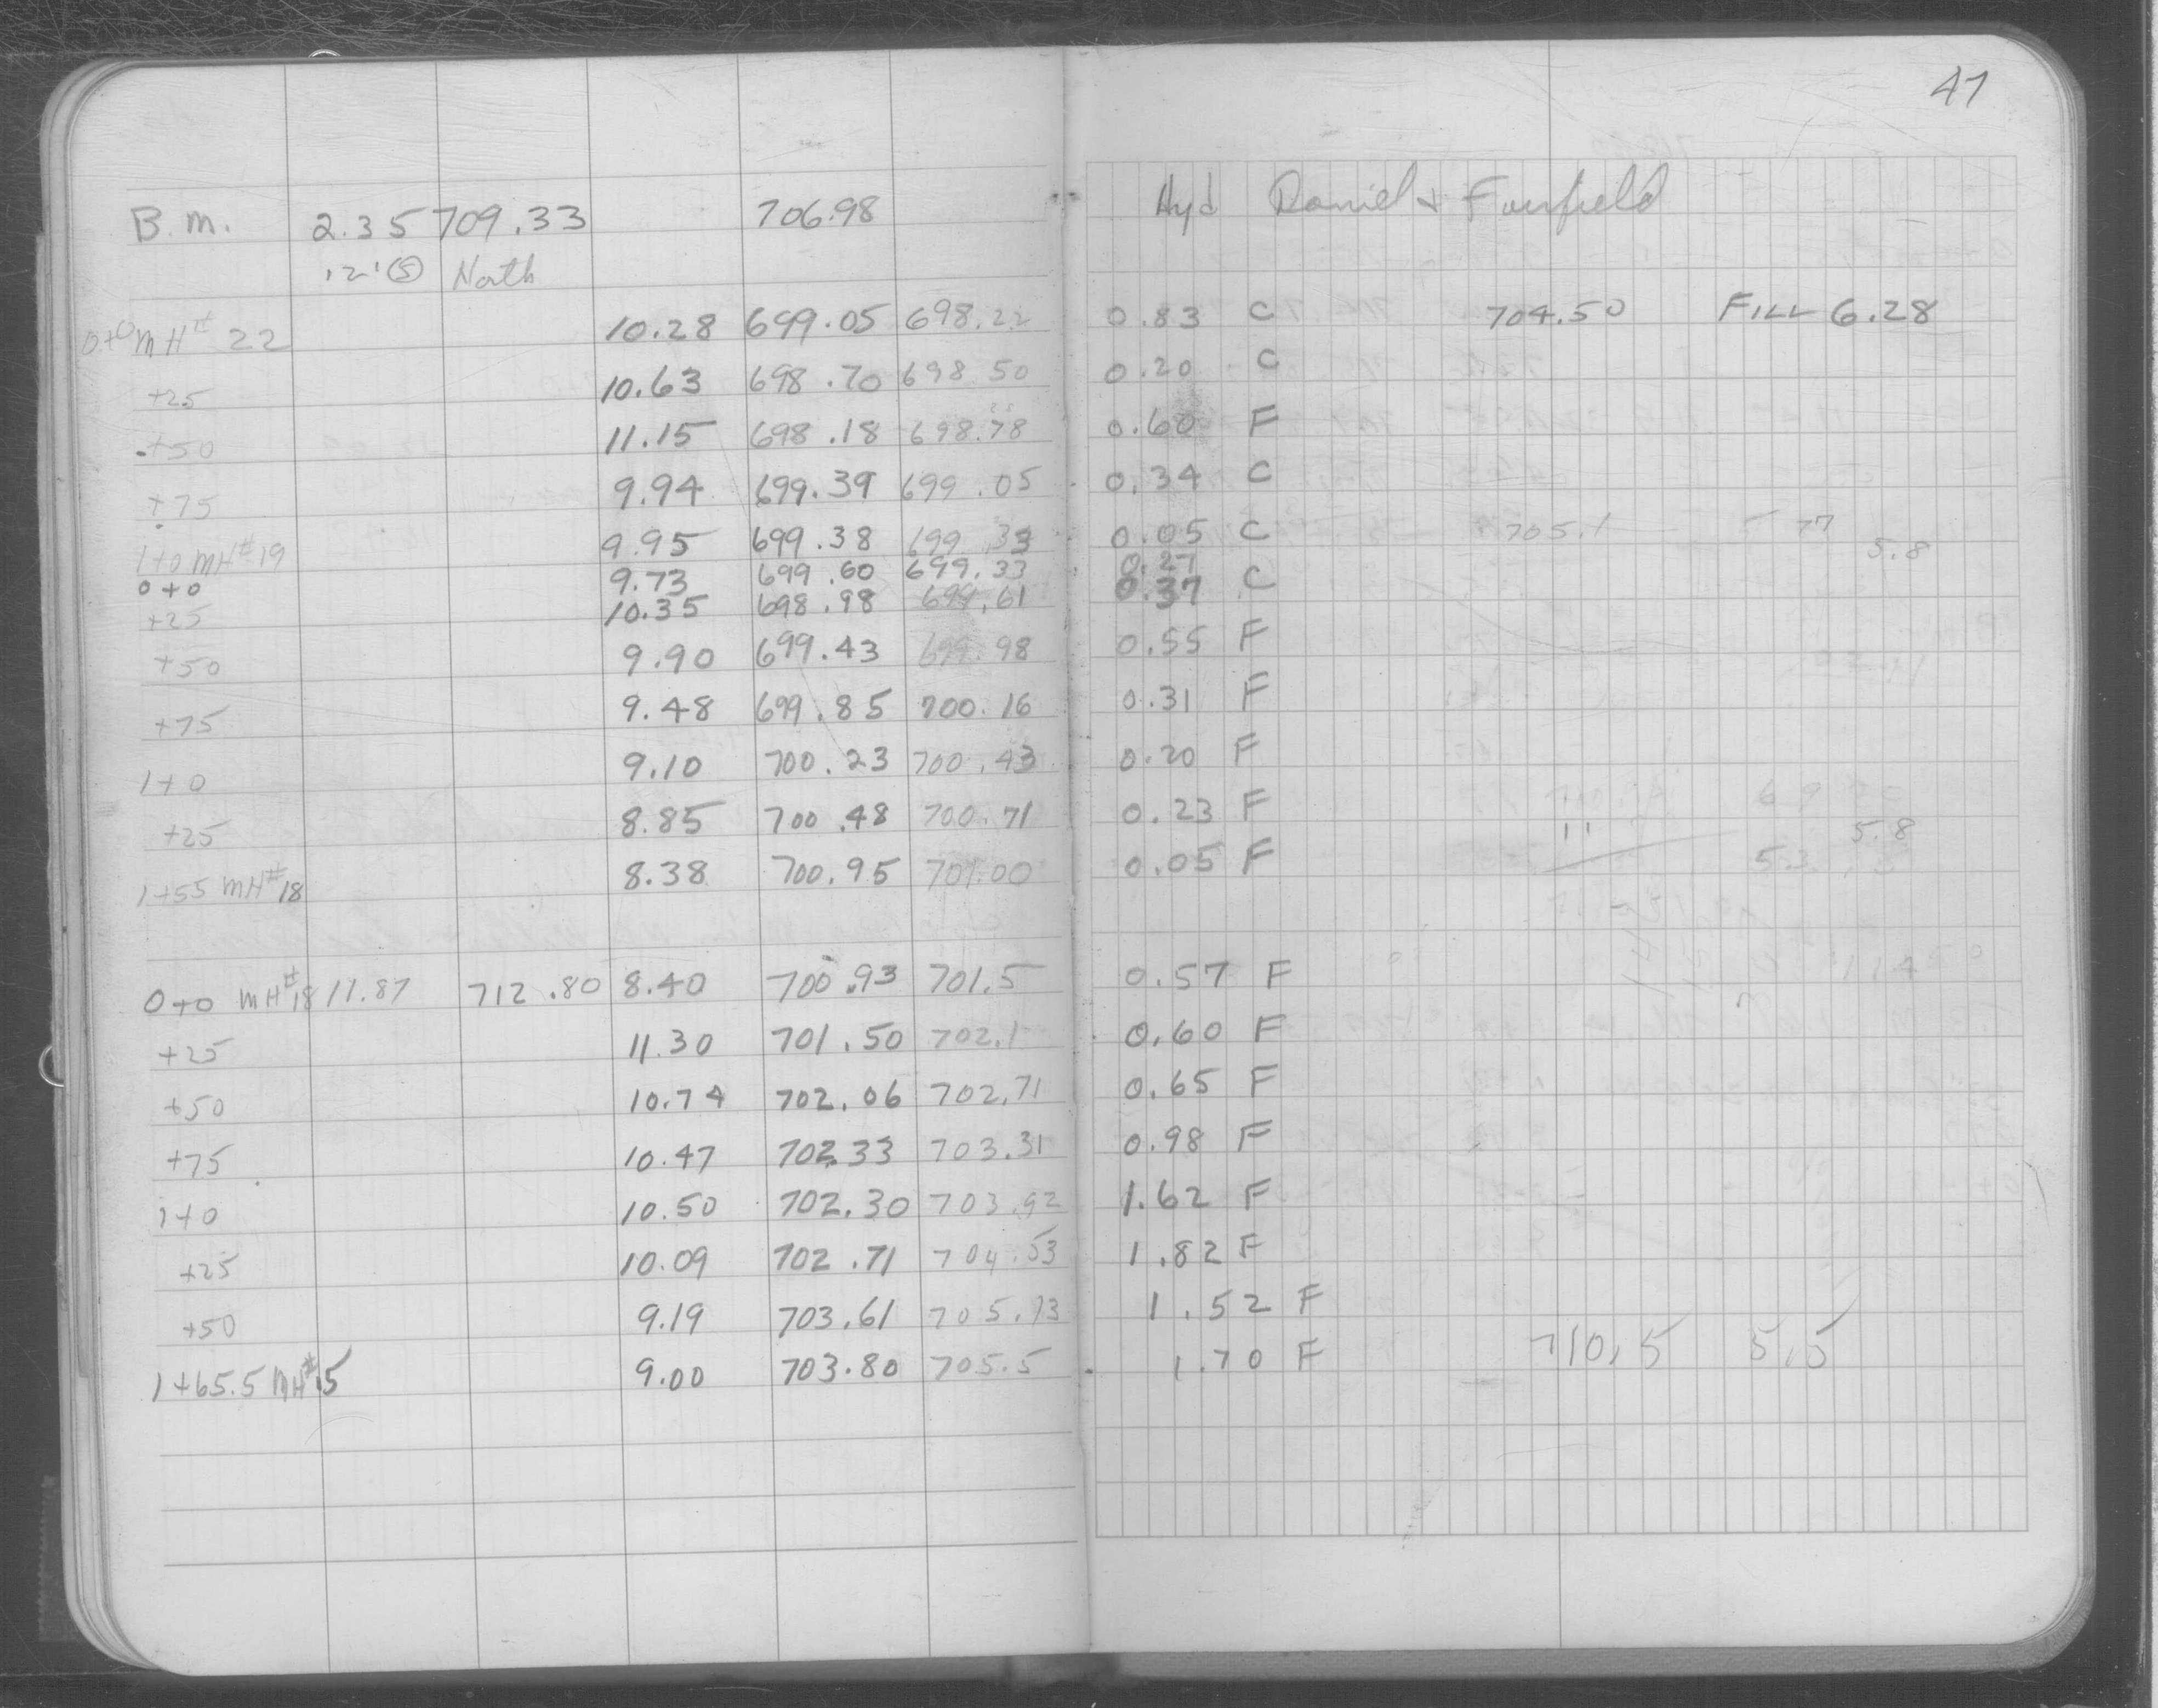 47
B.M. 2.35 709.33 706.98 Hyd Daniel & Fairfield
12' Ⓢ North
0+0 MH# 22 10.28 699.05 698.22 0.83 C 704.50 FILL 6.28
+25 10.63 698.70 698.50 0.20 C
+50 11.15 698.18 698.78 0.60 F
+75 9.94 699.39 699.05 0.34 C
1+0 MH#19 9.95 699.38 699.33 0.05 C 705.1 5.8
0+0 9.73 699.60 699.33 0.27
+25 10.35 698.98 699.61 0.37 C
+50 9.90 699.43 699.98 0.55 F
+75 9.48 699.85 700.16 0.31 F
1+0 9.10 700.23 700.43 0.20 F
+25 8.85 700.48 700.71 0.23 F 5.8
1+55 MH#18 8.38 700.95 701.00 0.05 F
0+0 MH#18 11.87 712.80 8.40 700.93 701.5 0.57 F
+25 11.30 701.50 702.1 0.60 F
+50 10.74 702.06 702.71 0.65 F
+75 10.47 702.33 703.31 0.98 F
1+0 10.50 702.30 703.92 1.62 F
+25 10.09 702.71 704.53 1.82 F
+50 9.19 703.61 705.13 1.52 F
1+65.5 MH#15 9.00 703.80 705.5 1.70 F 710.5 5.5